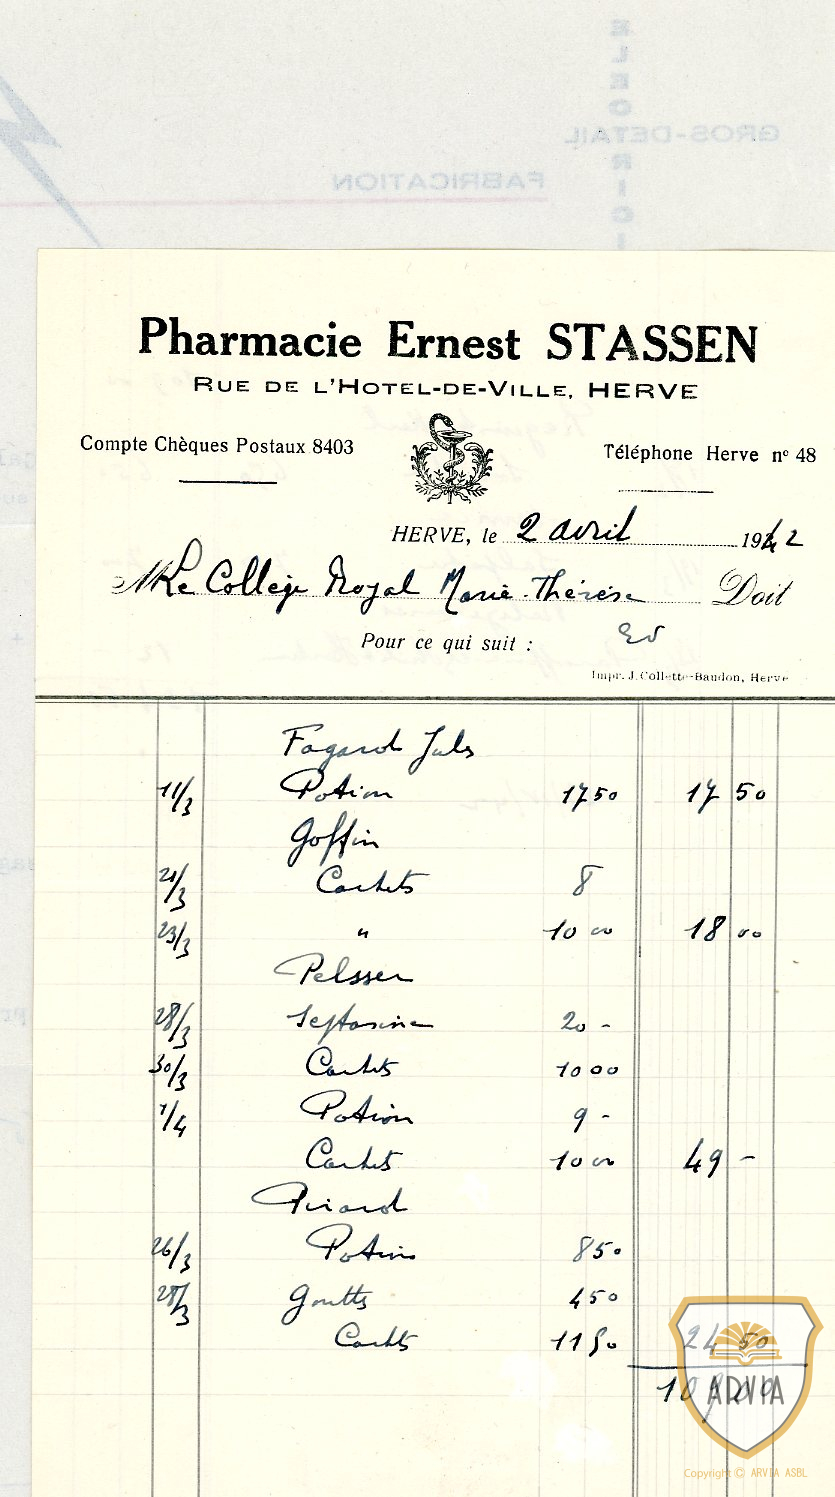 ELECTRICI
GROS-DETAIL
FABRICATION
Pharmacie Ernest STASSEN
RUE DE L'HOTEL-DE-VILLE, HERVE
Compte Chèques Postaux 8403
Téléphone Herve nº 48
HERVE, le 2 avril 1942
M Le Collège Royal Marie-Thérèse Doit
Pour ce qui suit :
Impr. J. Collette-Baudon, Herve
Fagard Jules
11/3 Potion 17 50 17 50
Goffin
21/3 Cachets 8
23/3 " 10 00 18 00
Pelsser
28/3 Septasine 20 -
30/3 Cachets 10 00
1/4 Potion 9 -
Cachets 10 00 49 -
Pirard
26/3 Potion 8 50
28/3 Gouttes 4 50
Cachets 11 50 24 50
109 00
ARVIA
Copyright © ARVIA ASBL